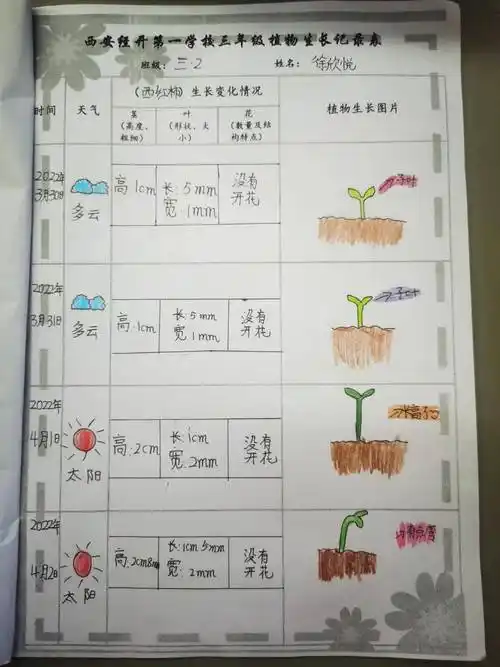 西安经开第一学校三年级植物生长记录表
班级: 三.2 姓名: 徐欣悦
时间 天气 (西红柿) 生长变化情况 植物生长图片
茎 (高度、粗细) 叶 (形状、大小) 花 (数量及结构特点)
2022年3月30日 多云 高 1cm 长: 5mm 宽: 1mm 没有开花 子叶
2022年3月31日 多云 高: 1cm 长: 5mm 宽: 1mm 没有开花 子叶
2022年4月1日 太阳 高: 2cm 长: 1cm 宽: 2mm 没有开花
2022年4月2日 太阳 高: 2cm8mm 长: 1cm 5mm 宽: 2mm 没有开花